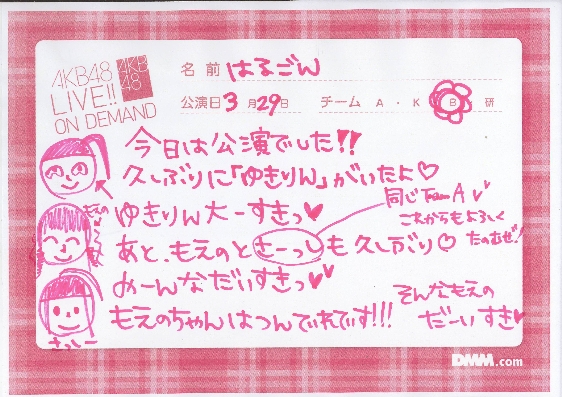 AKB48
LIVE!!
ON DEMAND
AKB
48
名前 はるごん
公演日 3月29日 チーム A・K B 研
今日は公演でした!!
久しぶりに「ゆきりん」がいたよ♡
ゆきりん大ーすきっ♥
同じTeam A
これからもよろしく
たのむぜ!
あと、もえのときーっしも久しぶり♡
みーんなだいすきっ♥
もえのちゃんはつんでれです!!!
そんなもえの
だーいすき♥
もえの
DMM.com